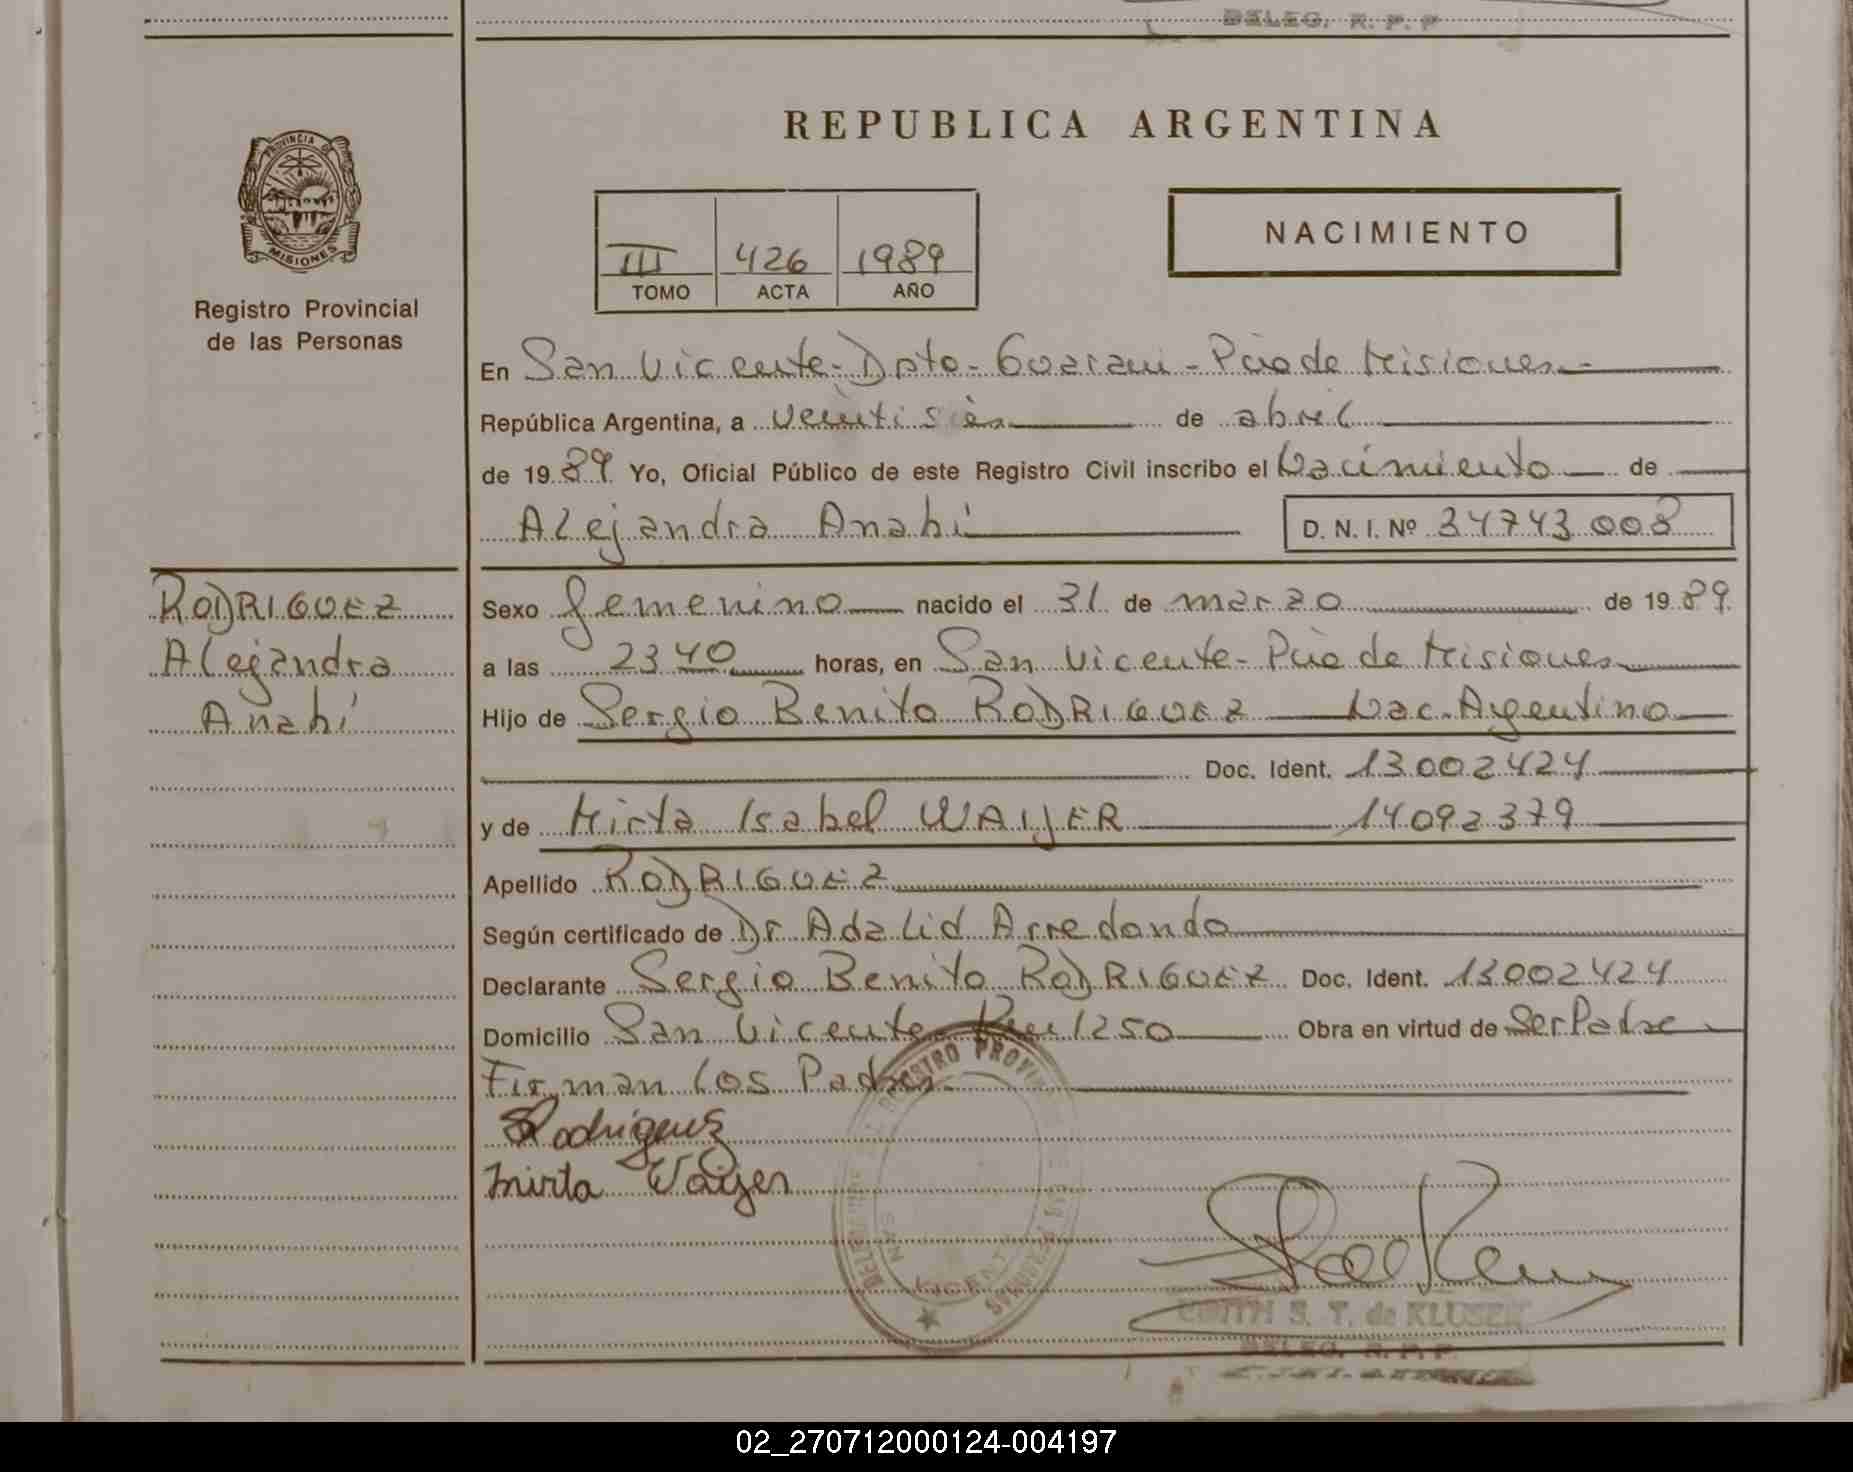 DELEG. R. P. P
REPUBLICA ARGENTINA
PROVINCIA DE
MISIONES
Registro Provincial
de las Personas
NACIMIENTO
III 426 1989
TOMO ACTA AÑO
En San Vicente - Dpto - Guarani - Pcia de Misiones
República Argentina, a veintiseis de abril
de 1989 Yo, Oficial Público de este Registro Civil inscribo el Nacimiento de
Alejandra Anahí D. N. I. Nº 34743.008
RODRIGUEZ
Alejandra
Anahí
Sexo femenino nacido el 31 de marzo de 1989.
a las 23 40 horas, en San Vicente - Pcia de Misiones
Hijo de Sergio Benito RODRIGUEZ Nac. Argentino
Doc. Ident. 13.002.424
y de Mirta Isabel WAIJER 14.092.379
Apellido RODRIGUEZ
Según certificado de Dr Adalid Arredondo
Declarante Sergio Benito RODRIGUEZ Doc. Ident. 13.002.424
Domicilio San Vicente Km 1250 Obra en virtud de Ser Padre
Firman los Padres
SRodriguez
Mirta Waijer
REGISTRO PROVIN
DE LAS PERSONAS
SAN VICENTE
S. T. de KLUSEN
DELEG. R. P. P.
02_270712000124-004197